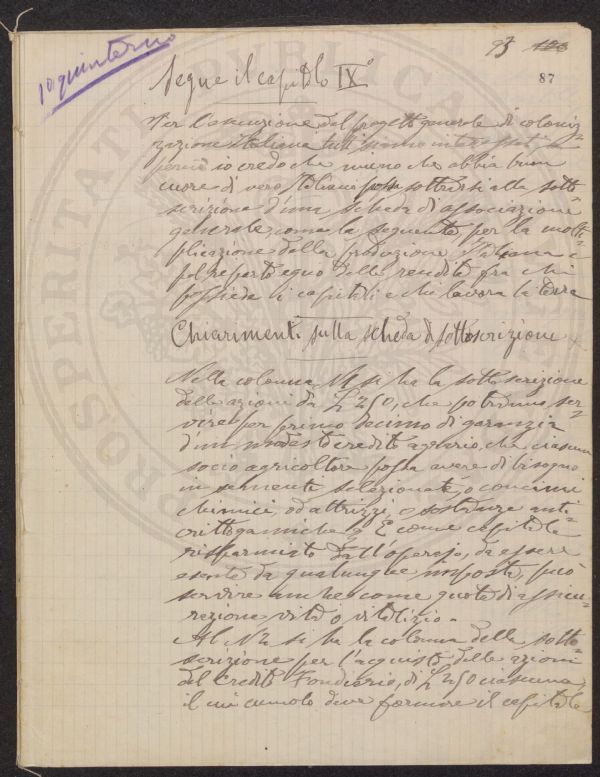 1o quinterno
95 126
87
Segue il capitolo IXo
Per l'esecuzione del progetto generale di coloniz=
zazione Italiana tutti siamo interessati,
perciò io credo che niuno che abbia buon
cuore di vero Italiano possa sottrarsi alla sotto=
scrizione d'una scheda di associazione
generale, come la seguente, per la molti=
plicazione della produzione Italiana e
pel reparto equo delle rendite fra chi
possiede li capitali e chi lavora la terra
Chiarimenti sulla scheda di sottoscrizione
Nella colonna N1 si ha la sottoscrizione
delle azioni da L 250, che potranno ser=
vire per primo decimo di garanzia
d'un modesto credito agrario, che ciascun
socio agricoltore possa avere di bisogno
in sementi selezionate, o concimi
chimici, od attrizzi, o sostanze anti=
crittogamiche E come capitale
risparmiato dall'operajo, da essere
esente da qualunque imposta, può
servire anche come quota di assicu=
razione vita o vitalizio.
Al N2 si ha la colonna della sotto=
scrizione per l'acquisto delle azioni
del Credito Fondiario, di L 250 ciascuna,
il cui cumolo deve formare il capitale
PROSPERITATI PUBLICAE